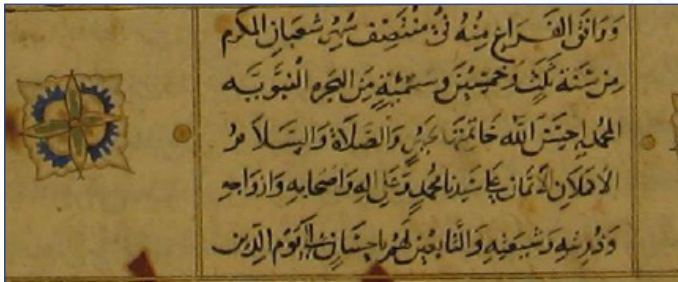 ووافق الفراغ منه في منتصف شهر شعبان المكرم
من سنة ثلث وخمسين وستمئة من الهجره النبويه
المحمديه احسن الله خاتمتها بخير والصلاة والسلام
الاكملان الاتمان على سيدنا محمد وعلى اله واصحابه وازواجه
وذريته وشيعته والتابعين لهم باحسان الى يوم الدين